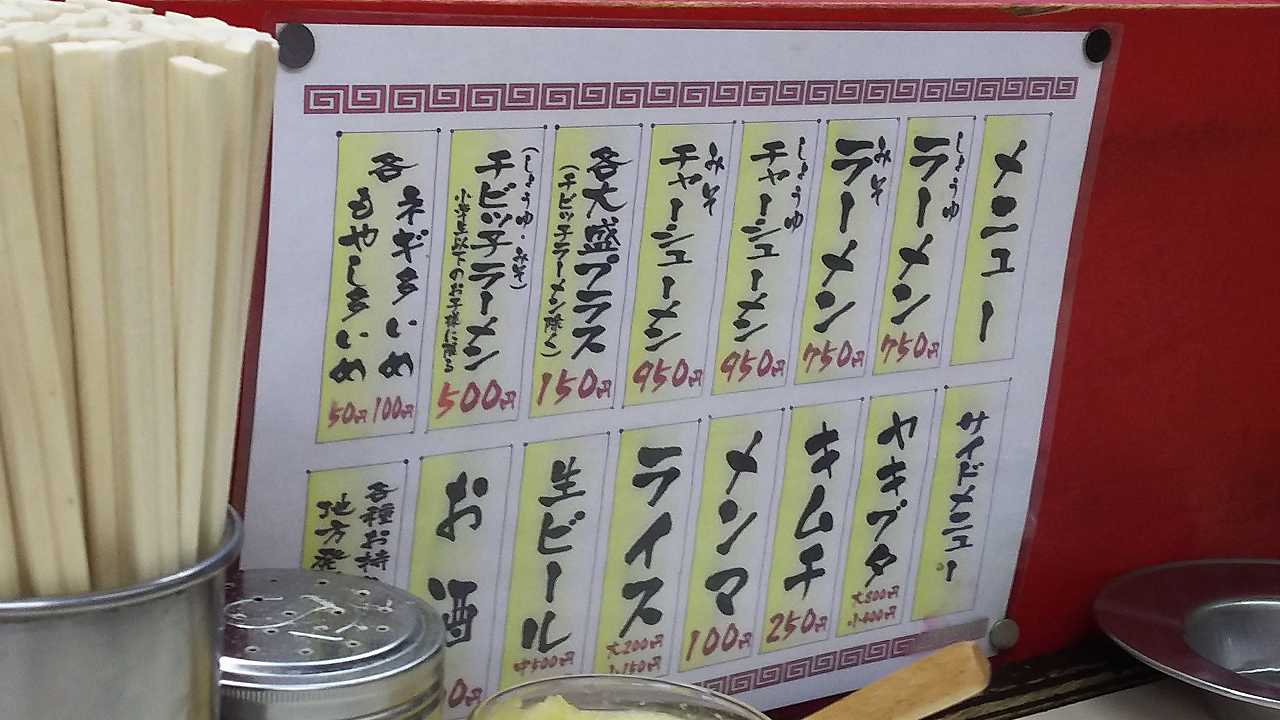 メニュー
しょうゆ
ラーメン 750円
みそ
ラーメン 750円
しょうゆ
チャーシューメン 950円
みそ
チャーシューメン 950円
各大盛プラス 150円
(チビッ子ラーメン除く)
(しょうゆ・みそ)
チビッ子ラーメン 500円
小学生以下のお子様に限る
各
ネギ多いめ 100円
もやし多いめ 50円
サイドメニュー
ヤキブタ
大800円
小400円
キムチ 250円
メンマ 100円
ライス
大200円
小150円
生ビール
中500円
お酒
0円
各種お持
地方発